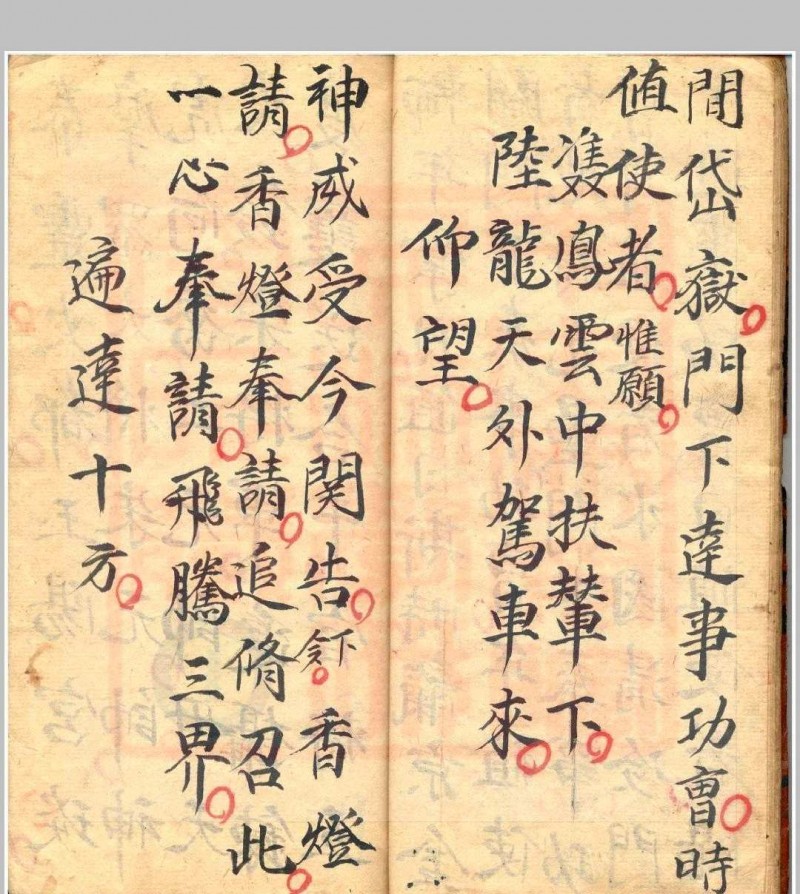 間岱嶽門下逹事功曺時
值使者惟願
鳳雲中扶輦下
陸龍天外駕車來
仰望
神威受今関告香燈
請香燈奉請追脩召此
一心奉請飛騰三界
遍達十方